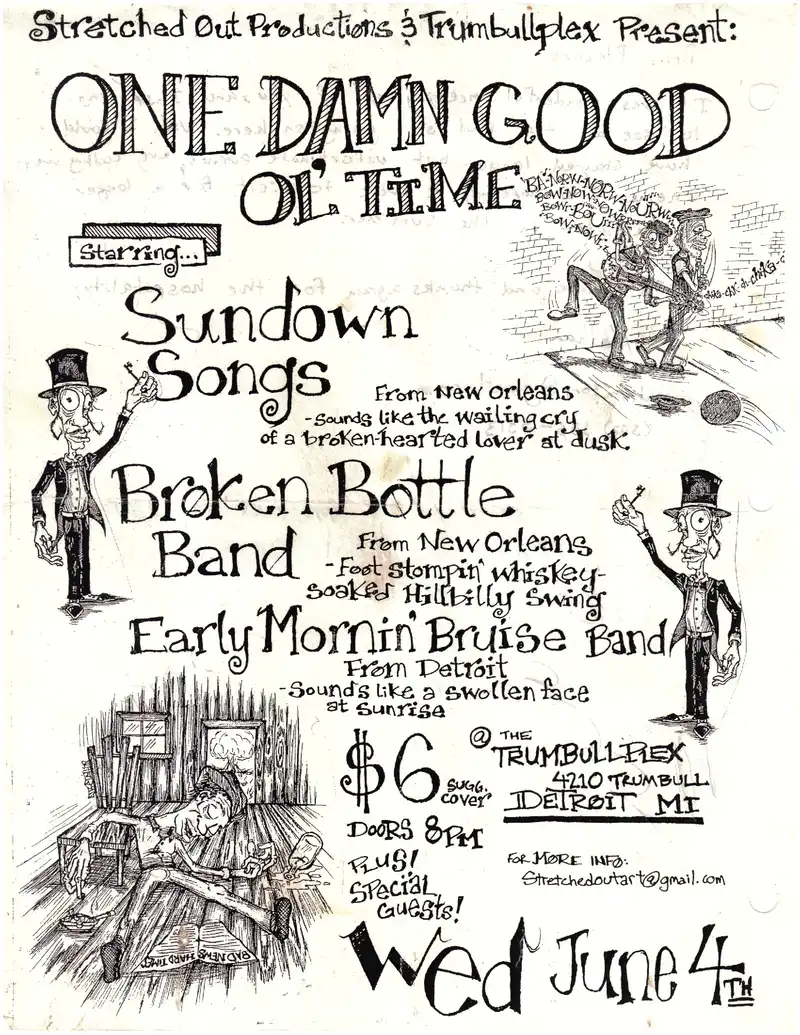 Stretched Out Productions & Trumbullplex Present:
ONE DAMN GOOD
OL' TIME
Starring...
Sundown
Songs
From New Orleans
-Sounds like the wailing cry
of a broken-hearted lover at dusk.
Broken Bottle
Band
From New Orleans
-Foot stompin' whiskey-
soaked Hillbilly Swing
Early Mornin' Bruise Band
From Detroit
-Sounds like a swollen face
at sunrise
$6
SUGG.
COVER
@ THE
TRUMBULLPLEX
4210 TRUMBULL
DETROIT MI
DOORS 8PM
PLUS!
SPECIAL
Guests!
FOR MORE INFO:
Stretchedoutart@gmail.com
BAD NEWS HARD TIMES
Wed June 4TH